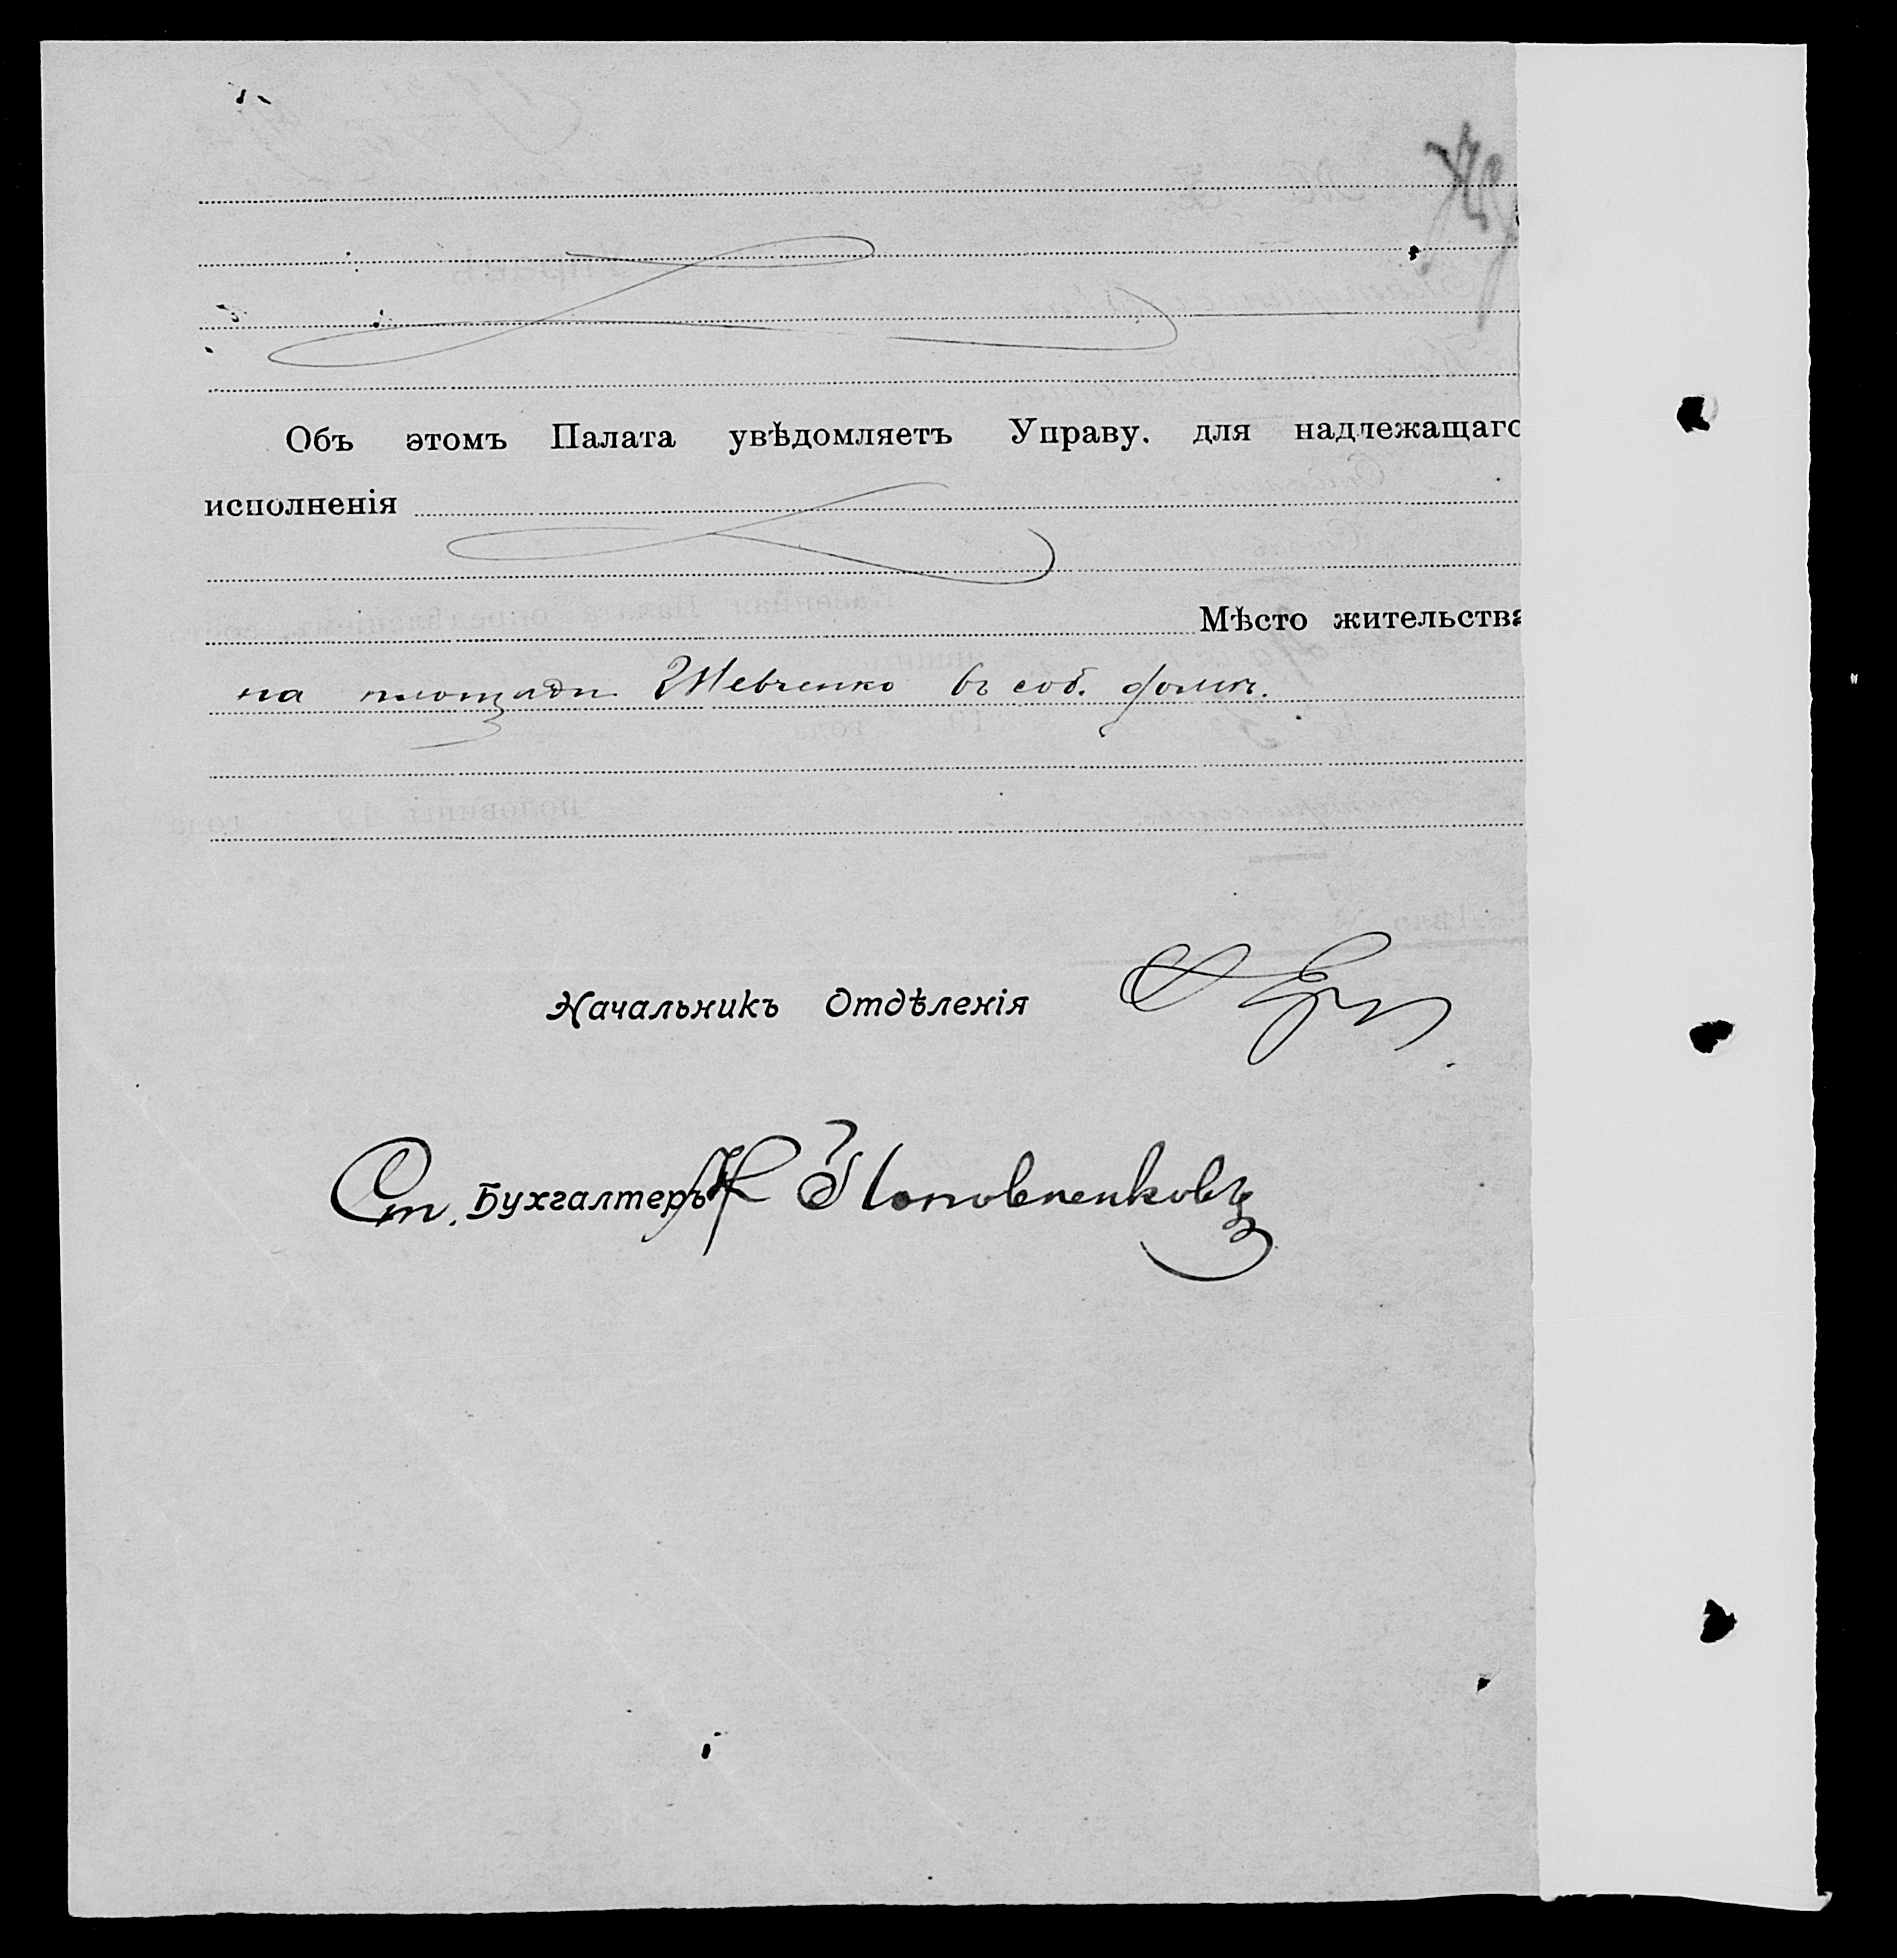 Объ этомъ Палата увѣдомляетъ Управу. для надлежащаго
исполненія
Мѣсто жительства
на площади Шевченко въ соб. домѣ.
Начальникъ Отдѣленія
Ст. Бухгалтеръ